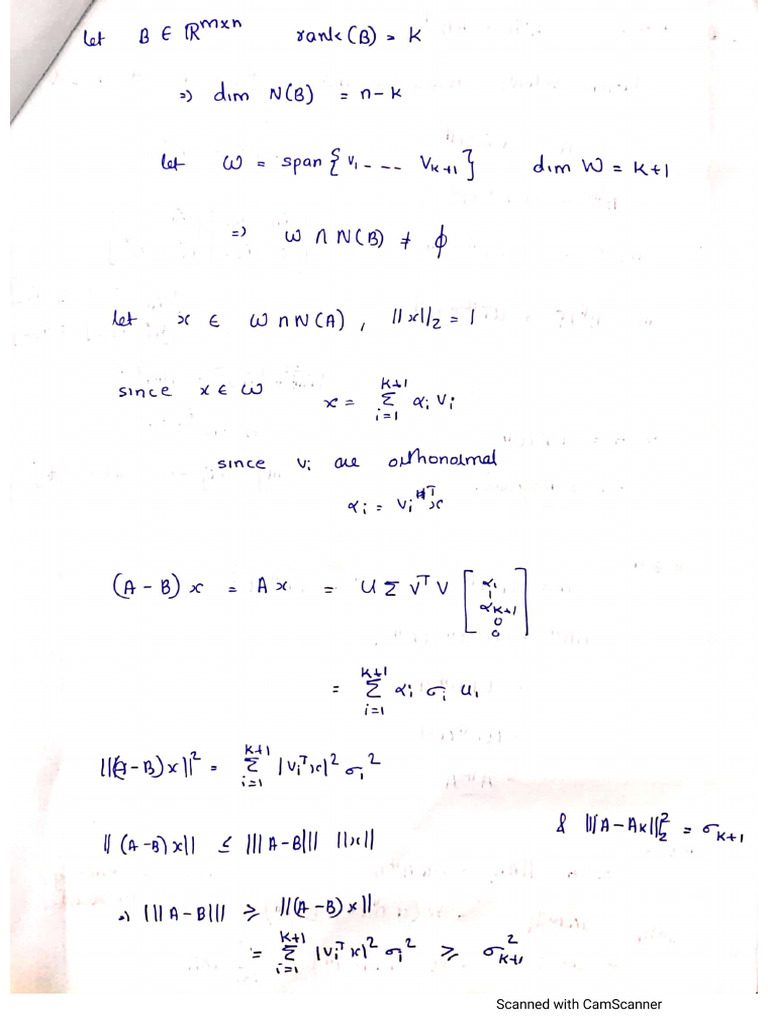 let B ∈ ℝ^{m×n} rank(B) = k
⇒ dim N(B) = n-k
let W = span { v₁ - - - - v_{k+1} } dim W = k+1
⇒ W ∩ N(B) ≠ ϕ
let x ∈ W ∩ N(A), ||x||₂ = 1
since x ∈ W x = Σ_{i=1}^{k+1} αᵢ vᵢ
since vᵢ are orthonormal
αᵢ = vᵢᵀx
(A - B) x = A x = U Σ Vᵀ V [α₁ ¦ α_{k+1} 0 0]
= Σ_{i=1}^{k+1} αᵢ σᵢ uᵢ
||(A-B)x||² = Σ_{i=1}^{k+1} |vᵢᵀx|² σᵢ²
& |||A-Ak|||₂² = σ_{k+1}
|| (A-B) x|| ≤ |||A-B||| ||x||
⇒ |||A-B||| ≥ ||(A-B) x||
= Σ_{i=1}^{k+1} |vᵢᵀ x|² σᵢ² ≥ σ²_{k+1}
Scanned with CamScanner